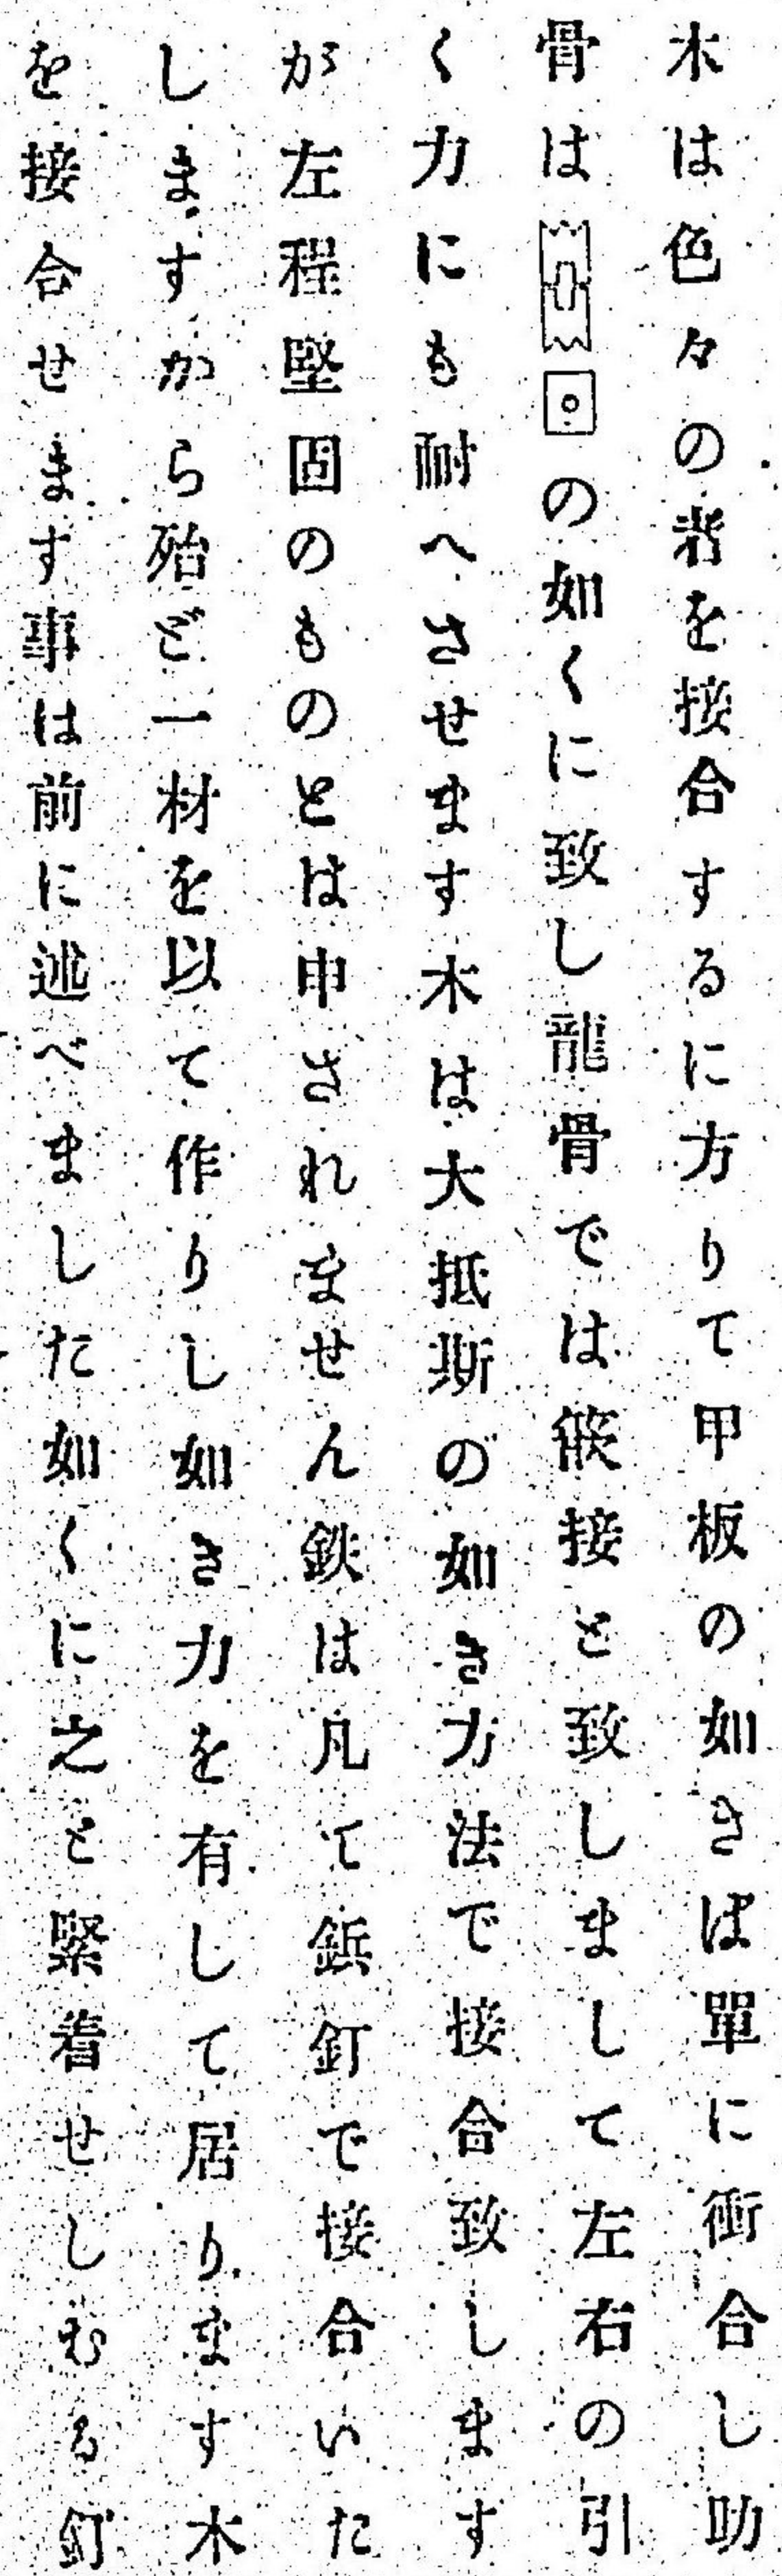 木は色々の者を接合するに方りて甲板の如きは單に衝合し助
骨はの如くに致し龍骨では篏接と致しまして左右の引
く力にも耐へさせます木は大抵斯の如き方法で接合致します
が左程堅固のものとは申されません鉄は凡て鋲釘で接合いた
しますから殆ど一材を以て作りし如き力を有して居ります木
を接合せます事は前に述べました如くに之と緊着せしむる釘